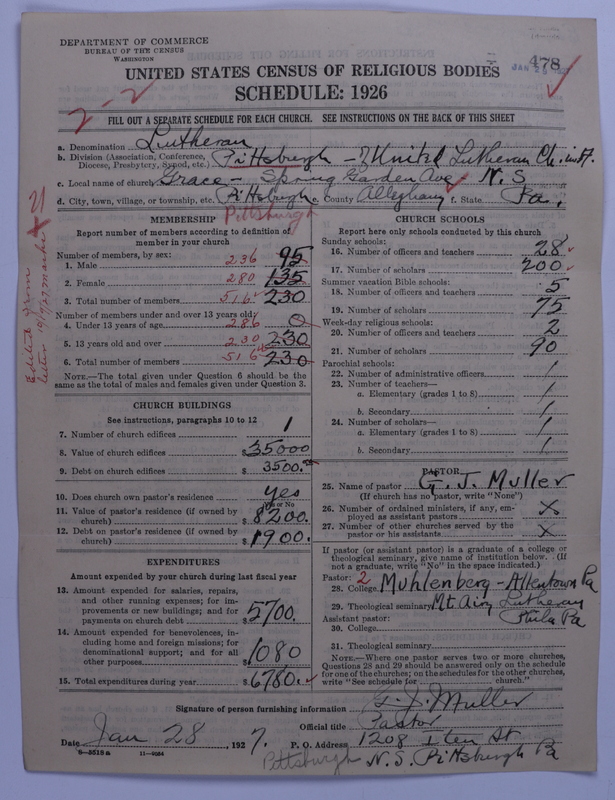 DEPARTMENT OF COMMERCE
BUREAU OF THE CENSUS
WASHINGTON
478
UNITED STATES CENSUS OF RELIGIOUS BODIES
SCHEDULE: 1926
2-2
FILL OUT A SEPARATE SCHEDULE FOR EACH CHURCH. SEE INSTRUCTIONS ON THE BACK OF THIS SHEET
a. Denomination Lutheran
b. Division (Association, Conference, Diocese, Presbytery, Synod, etc.) Pittsburgh - United Lutheran Ch. in A.
c. Local name of church Grace - Spring Garden Ave N.S.
d. City, town, village, or township, etc. Pittsburgh e. County Allegheny f. State Pa.
Pittsburgh
MEMBERSHIP
Report number of members according to definition of
member in your church
Number of members, by sex:
1. Male 236 95
2. Female 280 135
3. Total number of members 516 230
Number of members under and over 13 years old:
4. Under 13 years of age 286 0
5. 13 years old and over 230 230
6. Total number of members 516 230
NOTE.—The total given under Question 6 should be the
same as the total of males and females given under Question 3.
CHURCH BUILDINGS
See instructions, paragraphs 10 to 12
7. Number of church edifices 1
8. Value of church edifices $35000
9. Debt on church edifices $3500.
10. Does church own pastor's residence yes
Yes or No
11. Value of pastor's residence (if owned by
church) $8200.
12. Debt on pastor's residence (if owned by
church) $1900.
EXPENDITURES
Amount expended by your church during last fiscal year
13. Amount expended for salaries, repairs,
and other running expenses; for im-
provements or new buildings; and for
payments on church debt $5700.
14. Amount expended for benevolences, in-
cluding home and foreign missions; for
denominational support; and for all
other purposes $1080
15. Total expenditures during year $6780.
CHURCH SCHOOLS
Report here only schools conducted by this church
Sunday schools:
16. Number of officers and teachers 28
17. Number of scholars 200
Summer vacation Bible schools:
18. Number of officers and teachers 5
19. Number of scholars 75
Week-day religious schools:
20. Number of officers and teachers 2
21. Number of scholars 90
Parochial schools:
22. Number of administrative officers /
23. Number of teachers—
a. Elementary (grades 1 to 8) /
b. Secondary /
24. Number of scholars—
a. Elementary (grades 1 to 8) /
b. Secondary /
PASTOR
25. Name of pastor G. J. Muller
(If church has no pastor, write "None")
26. Number of ordained ministers, if any, em-
ployed as assistant pastors x
27. Number of other churches served by the
pastor or his assistants x
If pastor (or assistant pastor) is a graduate of a college or
theological seminary, give name of institution below. (If
not a graduate, write "No" in the space indicated.)
Pastor: 2
28. College Muhlenberg - Allentown Pa
29. Theological seminary Mt Airy Lutheran
Phila Pa
Assistant pastor:
30. College
31. Theological seminary
NOTE.—Where one pastor serves two or more churches,
Questions 28 and 29 should be answered only on the schedule
for one of the churches; on the schedules for the other churches,
write "See schedule for church."
Signature of person furnishing information G. J. Muller
Official title Pastor
Date Jan 28, 1927. P. O. Address 1208 St
Pittsburgh N.S. Pittsburgh Pa
8—5518a 11—9264